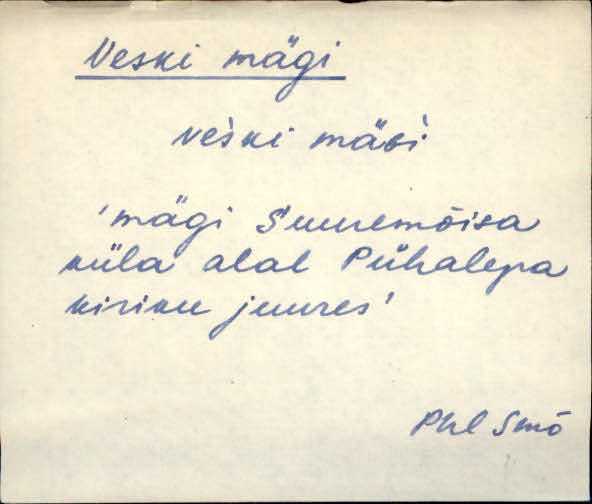 Veski mägi
veski mäɢi
'mägi Suuremõisa
küla alal Pühalepa
kiriku juures'
Phl Smõ